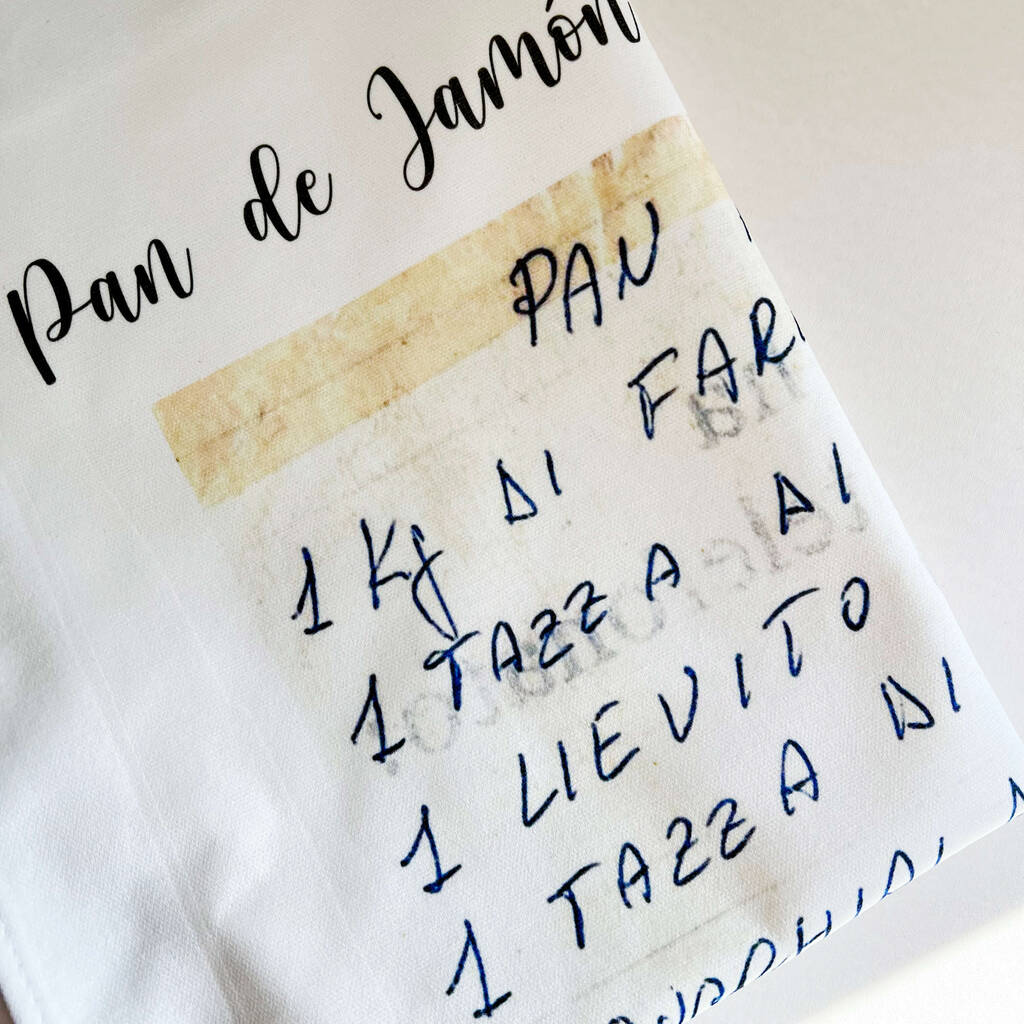 Pan de Jamón
PAN
1 Kg DI FAR
1 TAZZA DI
1 LIEVITO
1 TAZZA DI